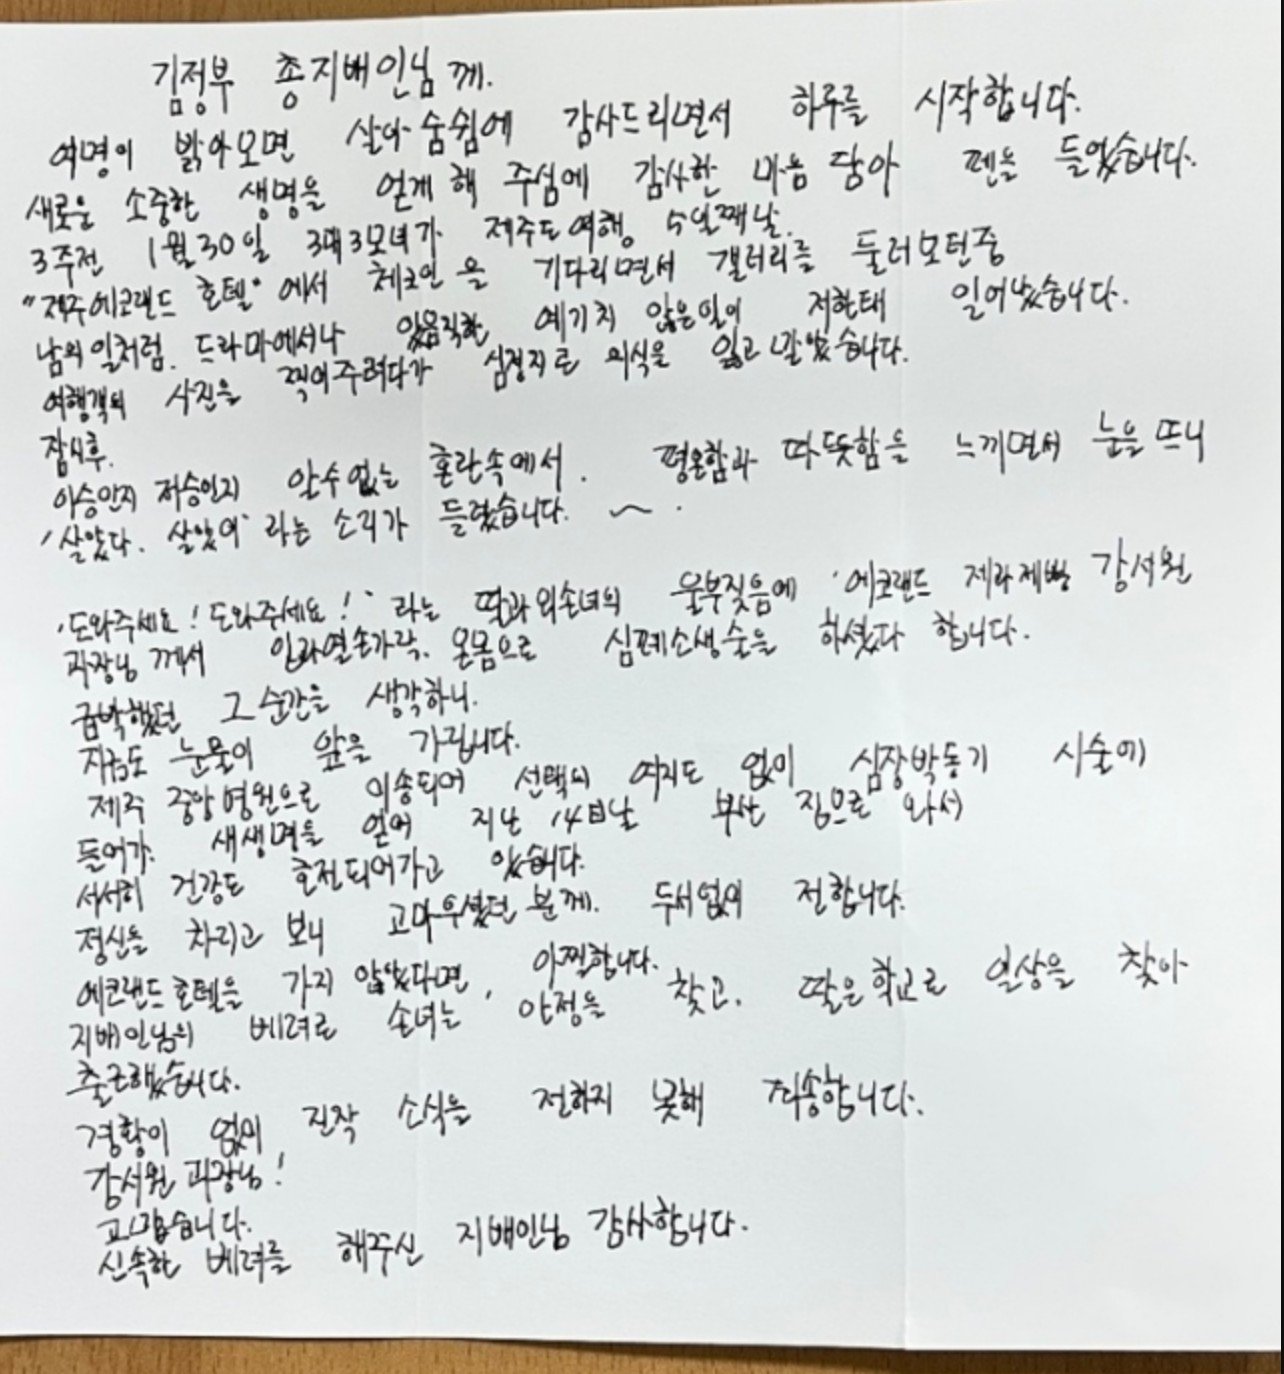 김정부 총지배인님께.
여명이 밝아오면 살아 숨쉼에 감사드리면서 하루를 시작합니다.
새로운 소중한 생명을 얻게 해 주심에 감사한 마음 담아 펜을 들었습니다.
3주전 1월 30일 3대3모녀가 제주도여행 5일째날.
"제주에코랜드 호텔"에서 체크인을 기다리면서 갤러리를 둘러보던중
남의일처럼. 드라마에서나 있음직한 예기치 않은일이 저한태 일어났습니다.
여행객의 사진을 찍어주려다가 심정지로 의식을 잃고 말았습니다.
잠시후.
이승인지 저승인지 알수없는 혼란속에서. 평온함과 따뜻함을 느끼면서 눈을 뜨니
'살았다. 살았어' 라는 소리가 들렸습니다. ~.
'도와주세요! 도와주세요!' 라는 딸과 외손녀의 울부짖음에 '에코랜드 제과제빵 강서원
과장님께서 입과열손가락. 온몸으로 심폐소생술을 하셨다 합니다.
급박했던 그 순간을 생각하니.
지금도 눈물이 앞을 가립니다.
제주 중앙병원으로 이송되어 선택의 여지도 없이 심장박동기 시술에
들어가. 새생명을 얻어 지난 14日날 부산 집으로 와서
서서히 건강도 호전되어가고 있습니다.
정신을 차리고 보니 고마우셨던 분께. 두서없이 전합니다.
에코랜드호텔을 가지 않았다면, 아찔합니다.
지배인님의 베려로 손녀는 안정을 찾고. 딸은학교로 일상을 찾아
출근했습니다.
경황이 없어 진작 소식을 전하지 못해 죄송합니다.
강서원 과장님!
고맙습니다.
신속한 베려를 해주신 지배인님 감사합니다.